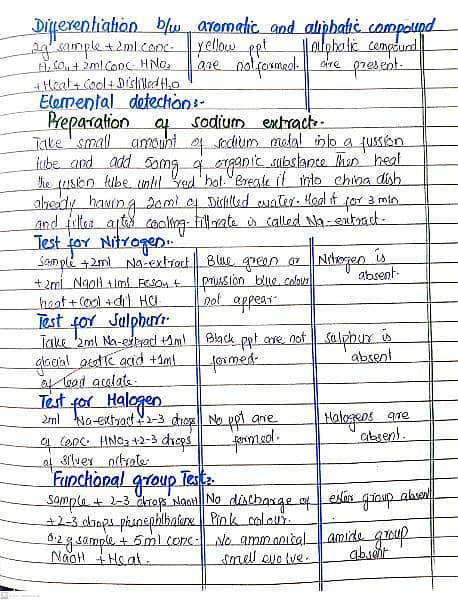 Differentiation b/w aromatic and aliphatic compound
2g sample + 2ml conc. yellow ppt Aliphatic compound
H2SO4 + 2ml conc. HNO3 are not formed. are present.
+ Heat + Cool + Distilled H2O
Elemental detections:-
Preparation of sodium extract:-
Take small amount of sodium metal into a fussion
tube and add 50mg of organic substance then heat
the fusion tube until red hot. Break it into china dish
already having 20ml of Distilled water. Heat it for 3 min
and filter after cooling. Filtrate is called Na-extract.
Test for Nitrogen:-
Sample + 2ml Na-extract Blue green or Nitrogen is
+ 2ml NaOH + 1ml FeSO4 + prussion blue colour absent.
heat + cool + dil HCl. not appear.
Test for Sulphur:-
Take 2ml Na-extract + 1ml Black ppt are not sulphur is
glacial acetic acid + 1ml formed. absent
of lead acetate.
Test for Halogen
2ml Na-extract + 2-3 drops No ppt are Halogens are
of conc. HNO3 + 2-3 drops formed. absent.
of silver nitrate.
Functional group Test:-
Sample + 2-3 drops NaOH No discharge of ester group absent
+ 2-3 drops phenophthalene Pink colour.
0.2g sample + 5ml conc. No ammonical amide group
NaOH + Heat. smell evolve. absent